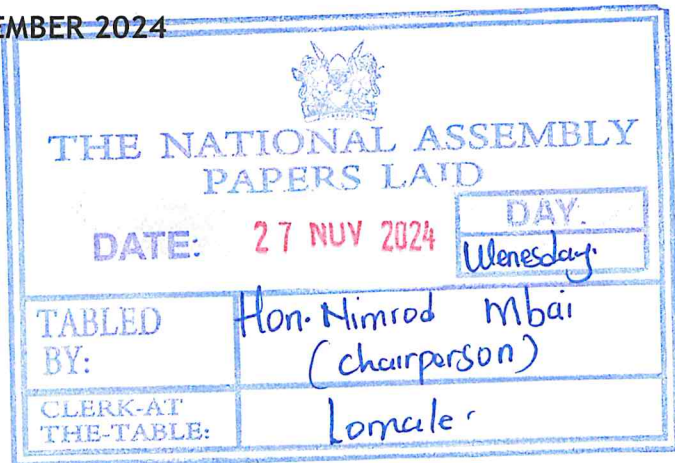 EMBER 2024
THE NATIONAL ASSEMBLY
PAPERS LAID
DATE: 27 NOV 2024
DAY.
Wenesday.
TABLED BY: Hon. Nimrod Mbai (chairperson)
CLERK-AT THE-TABLE: Lomale